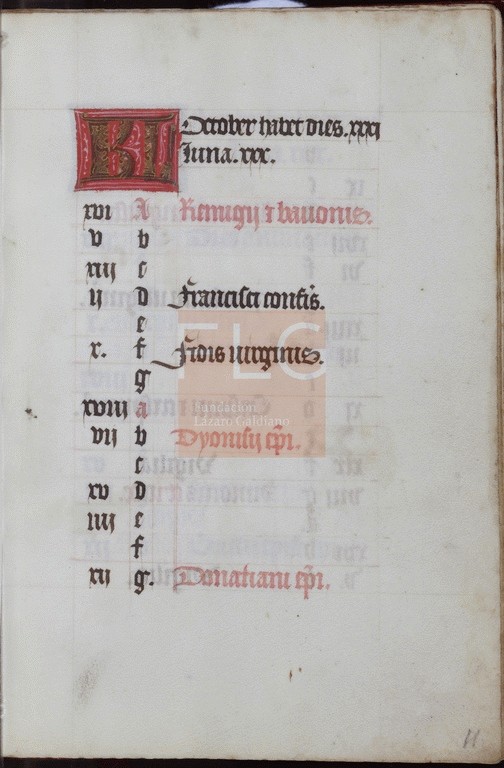 KL October habet dies. xxxj
luna. xxx.
xvi A Remigij et bavonis.
v b
xiij c
ij d Francisci confes.
e
x. f Fidis virginis.
g
xviij a
vij b Dyonisij epi.
c
xv d
iiij e
f
xij g Donatiani epi.
FLG
Fundación
Lázaro Galdiano
11